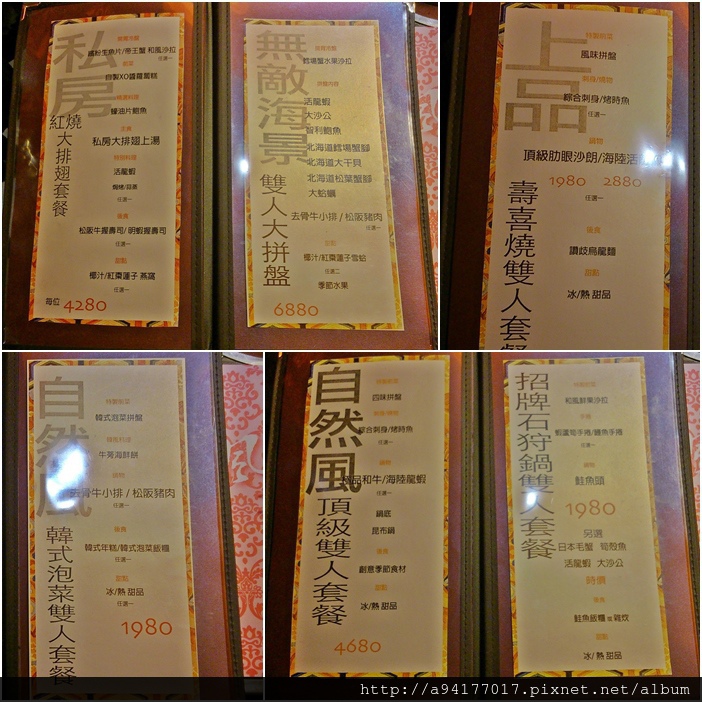 私房
紅燒大排翅套餐
繽紛生魚片/帝王蟹 和風沙拉
任選一
自製XO醬蘿蔔糕
蠔油片鮑魚
私房大排翅上湯
活龍蝦
焗烤/蒜蒸
任選一
松阪牛握壽司/明蝦握壽司
任選一
甜點
椰汁/紅棗蓮子 燕窩
任選一
每位 4280
無敵海景
雙人大拼盤
鱈場蟹水果沙拉
活龍蝦
大沙公
智利鮑魚
北海道鱈場蟹腳
北海道大干貝
北海道松葉蟹腳
大蛤蠣
去骨牛小排/松阪豬肉
任選一
甜點
椰汁/紅棗蓮子雪蛤
任選二
季節水果
6880
上品
壽喜燒雙人套餐
特製前菜
風味拼盤
刺身/烤物
綜合刺身/烤時魚
任選一
鍋物
頂級肋眼沙朗/海陸活
1980 2880
任選一
後食
讚歧烏龍麵
甜點
冰/熱 甜品
自然風
韓式泡菜雙人套餐
特製前菜
韓式泡菜拼盤
特別料理
牛蒡海鮮餅
鍋物
去骨牛小排/松阪豬肉
任選一
後食
韓式年糕/韓式泡菜飯糰
任選一
甜點
冰/熱 甜品
任選一
1980
自然風
頂級雙人套餐
特製前菜
四味拼盤
綜合刺身/烤時魚
任選一
鍋物
極品和牛/海陸龍蝦
任選一
鍋底
昆布鍋
後食
創意季節食材
甜點
冰/熱 甜品
4680
招牌石狩鍋雙人套餐
特製前菜
和風鮮果沙拉
手捲
蝦蘆筍手捲/鰻魚手捲
任選一
鍋物
鮭魚頭
1980
另選
日本毛蟹 筍殼魚
活龍蝦 大沙公
時價
後食
鮭魚飯糰 或 雜炊
甜點
冰/熱 甜品
http://a94177017.pixnet.net/album